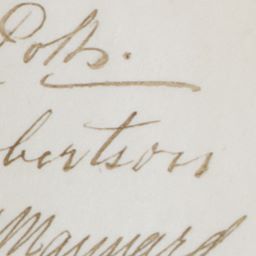 Polk.
bertson
Maynard